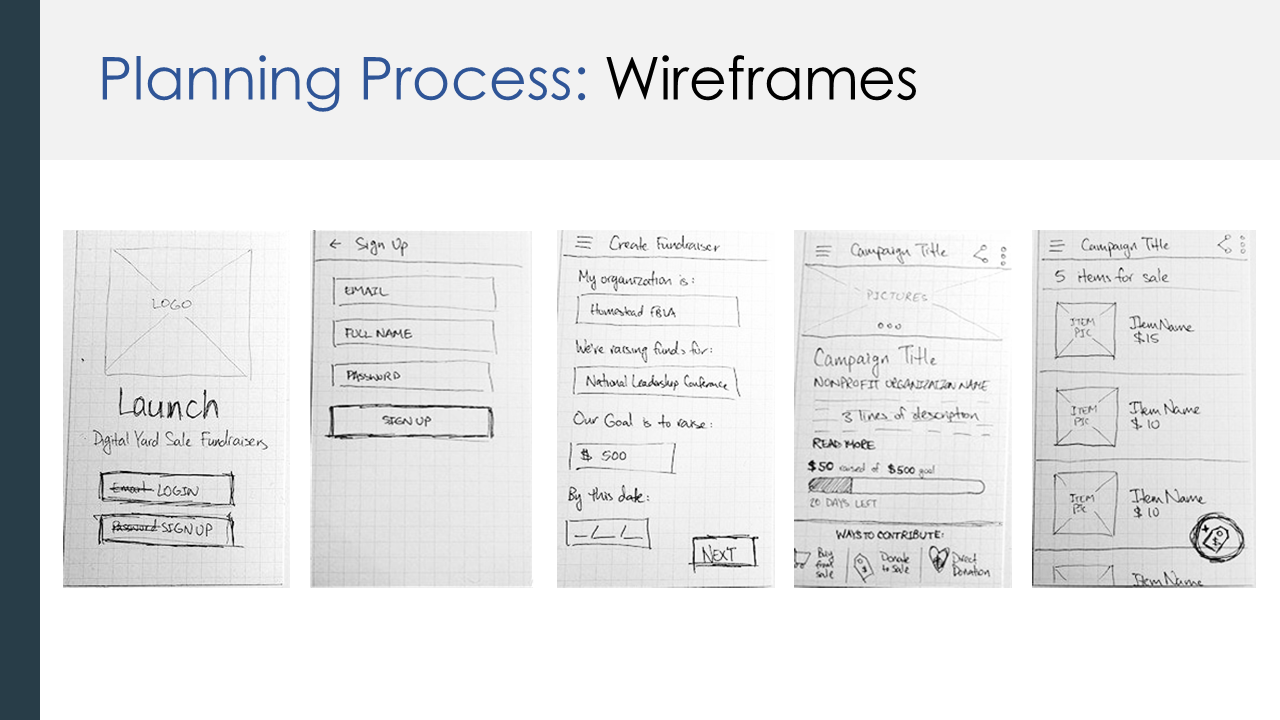 Planning Process: Wireframes
LOGO
Launch
Digital Yard Sale Fundraisers
Email LOGIN
Password SIGN UP
← Sign Up
EMAIL
FULL NAME
PASSWORD
SIGN UP
Create Fundraiser
My organization is:
Homestead FBLA
We're raising funds for:
National Leadership Conference
Our Goal is to raise:
$ 500
By this date:
_/_/_
NEXT
Campaign Title
PICTURES
Campaign Title
NONPROFIT ORGANIZATION NAME
3 lines of description
READ MORE
$50 raised of $500 goal
20 DAYS LEFT
WAYS TO CONTRIBUTE:
Buy from sale
Donate to Sale
Direct Donation
Campaign Title
5 items for sale
ITEM PIC
Item Name
$15
ITEM PIC
Item Name
$ 10
ITEM PIC
Item Name
$ 10
Item Name